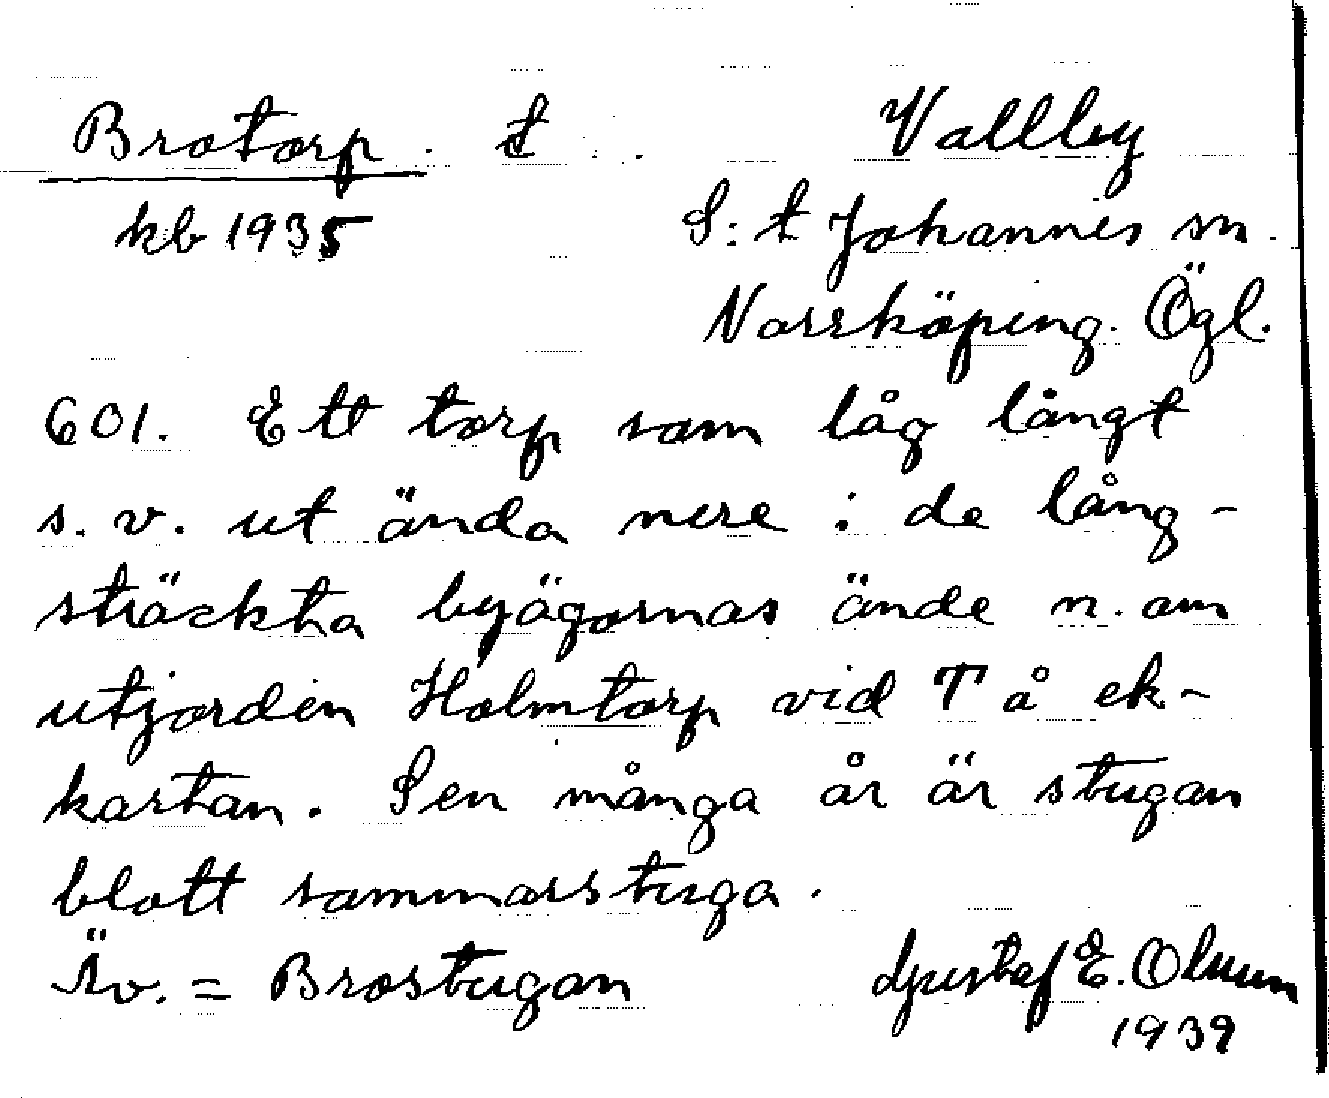 Brotorp. t Vallby
kb 1935 S:t Johannis sn.
Norrköping. Ögl.
601. Ett torp som låg långt
s.v. ut ända nere i de lång-
sträckta byägornas ände n. om
utjorden Holmtorp vid T å ek-
kartan. Sen många år är stugan
blott sommarstuga.
Äv. = Brostugan Gustaf E. Olsson
1939